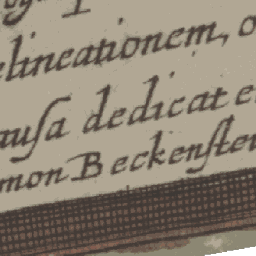 elineationem, o
ausa dedicat e
mon Beckenste